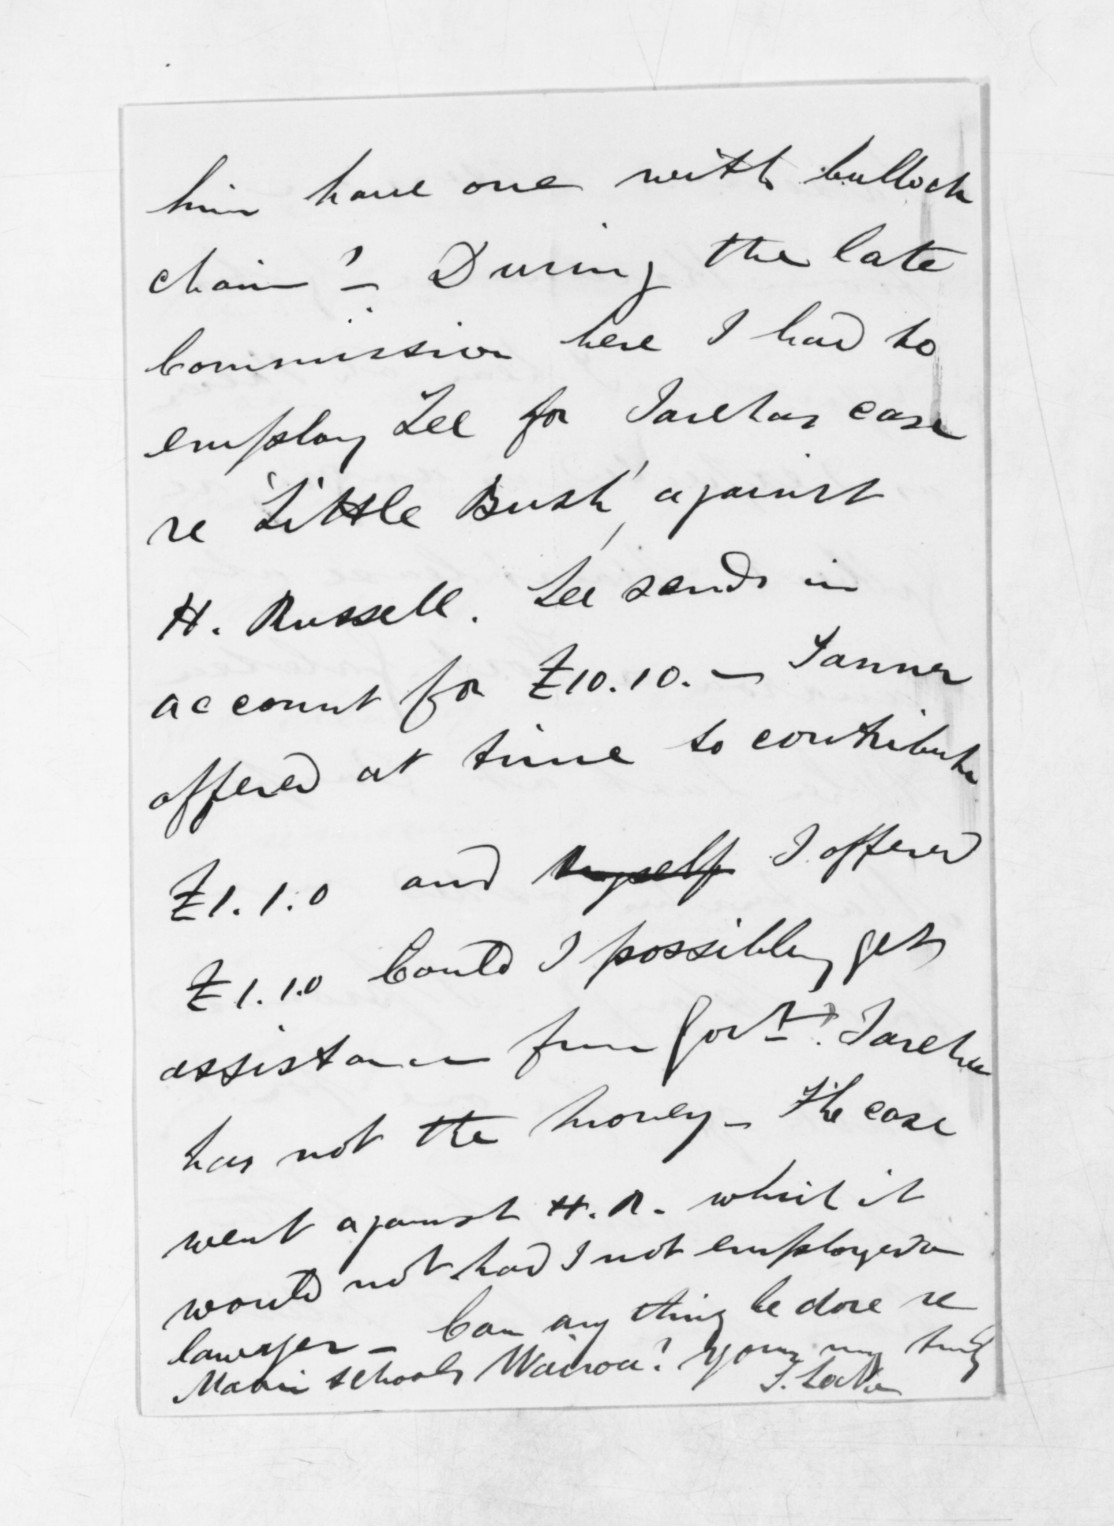 him have one with bullock
chain? – During the late
Commission here I had to
employ Lee for Tarehas case
re 'Little Bush' against
H. Russell. Lee sends in
account for £10.10. – Tanner
offered at time to contribute
£1.1.0 and myself I offered
£1.1.0 Could I possibly get
assistance from Govt? Tareha
has not the money – The case
went against H.R. which it
would not had I not employed a
lawyer – Can any thing be done re
Maori schools Wairoa? Yours very truly
S. Locke